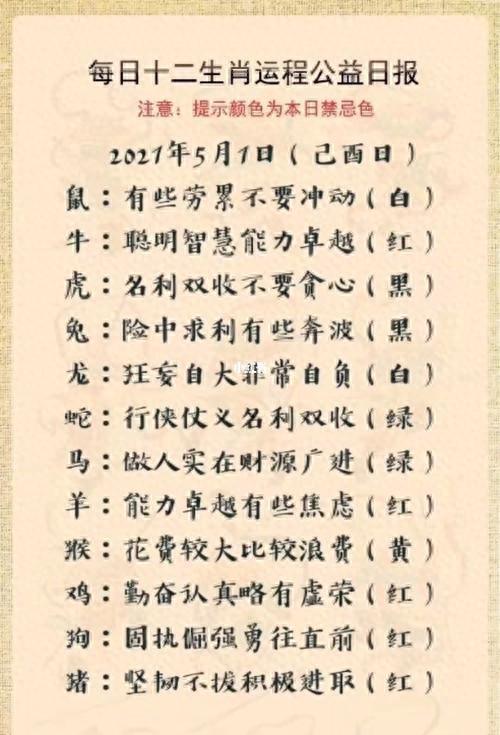 每日十二生肖运程公益日报
注意：提示颜色为本日禁忌色
2021年5月1日（己酉日）
鼠：有些劳累不要冲动（白）
牛：聪明智慧能力卓越（红）
虎：名利双收不要贪心（黑）
兔：险中求利有些奔波（黑）
龙：狂妄自大非常自负（白）
蛇：行侠仗义名利双收（绿）
马：做人实在财源广进（绿）
羊：能力卓越有些焦虑（红）
猴：花费较大比较浪费（黄）
鸡：勤奋认真略有虚荣（红）
狗：固执倔强勇往直前（红）
猪：坚韧不拔积极进取（红）